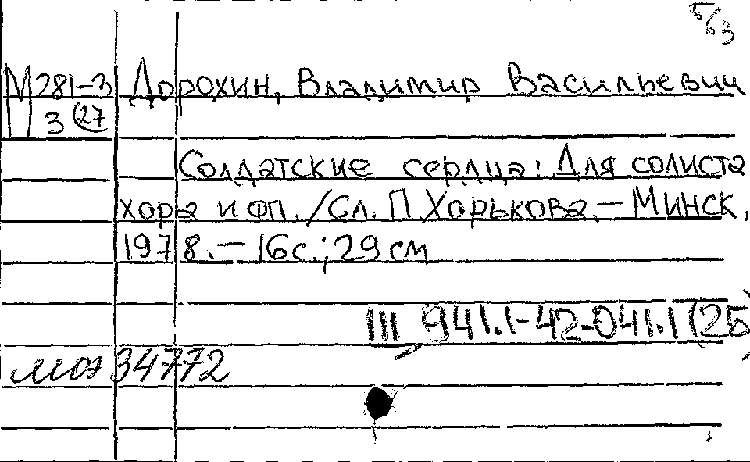 б/з
М 281-3 Дорохин, Владимир Васильевич
3 (27
Солдатские сердца: Для солиста
хора и фп. /Сл. П. Хорькова.– Минск,
1978.– 16с.; 29см
III 941.1-42-041.1(2Б
34772